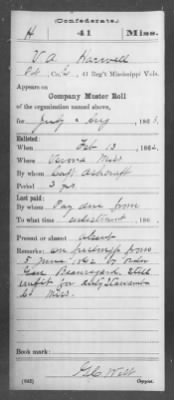 (Confederate.)
H 41 Miss.
V. A. Harwell
Pvt, Co. L, 41 Reg't Mississippi Vols.
Appears on
Company Muster Roll
of the organization named above,
for July & Aug, 1862.
Enlisted:
When Feb 13, 1862.
Where Verona Miss
By whom Capt Ashcraft
Period 3 yrs
Last paid:
By whom Pay due from
To what time enlistment, 186 .
Present or absent absent
Remarks: on furlough from
5 June 1862 by order
Gen Beauregard Still
unfit for duty
Co Miss.
Book mark:
(642) Copyist.